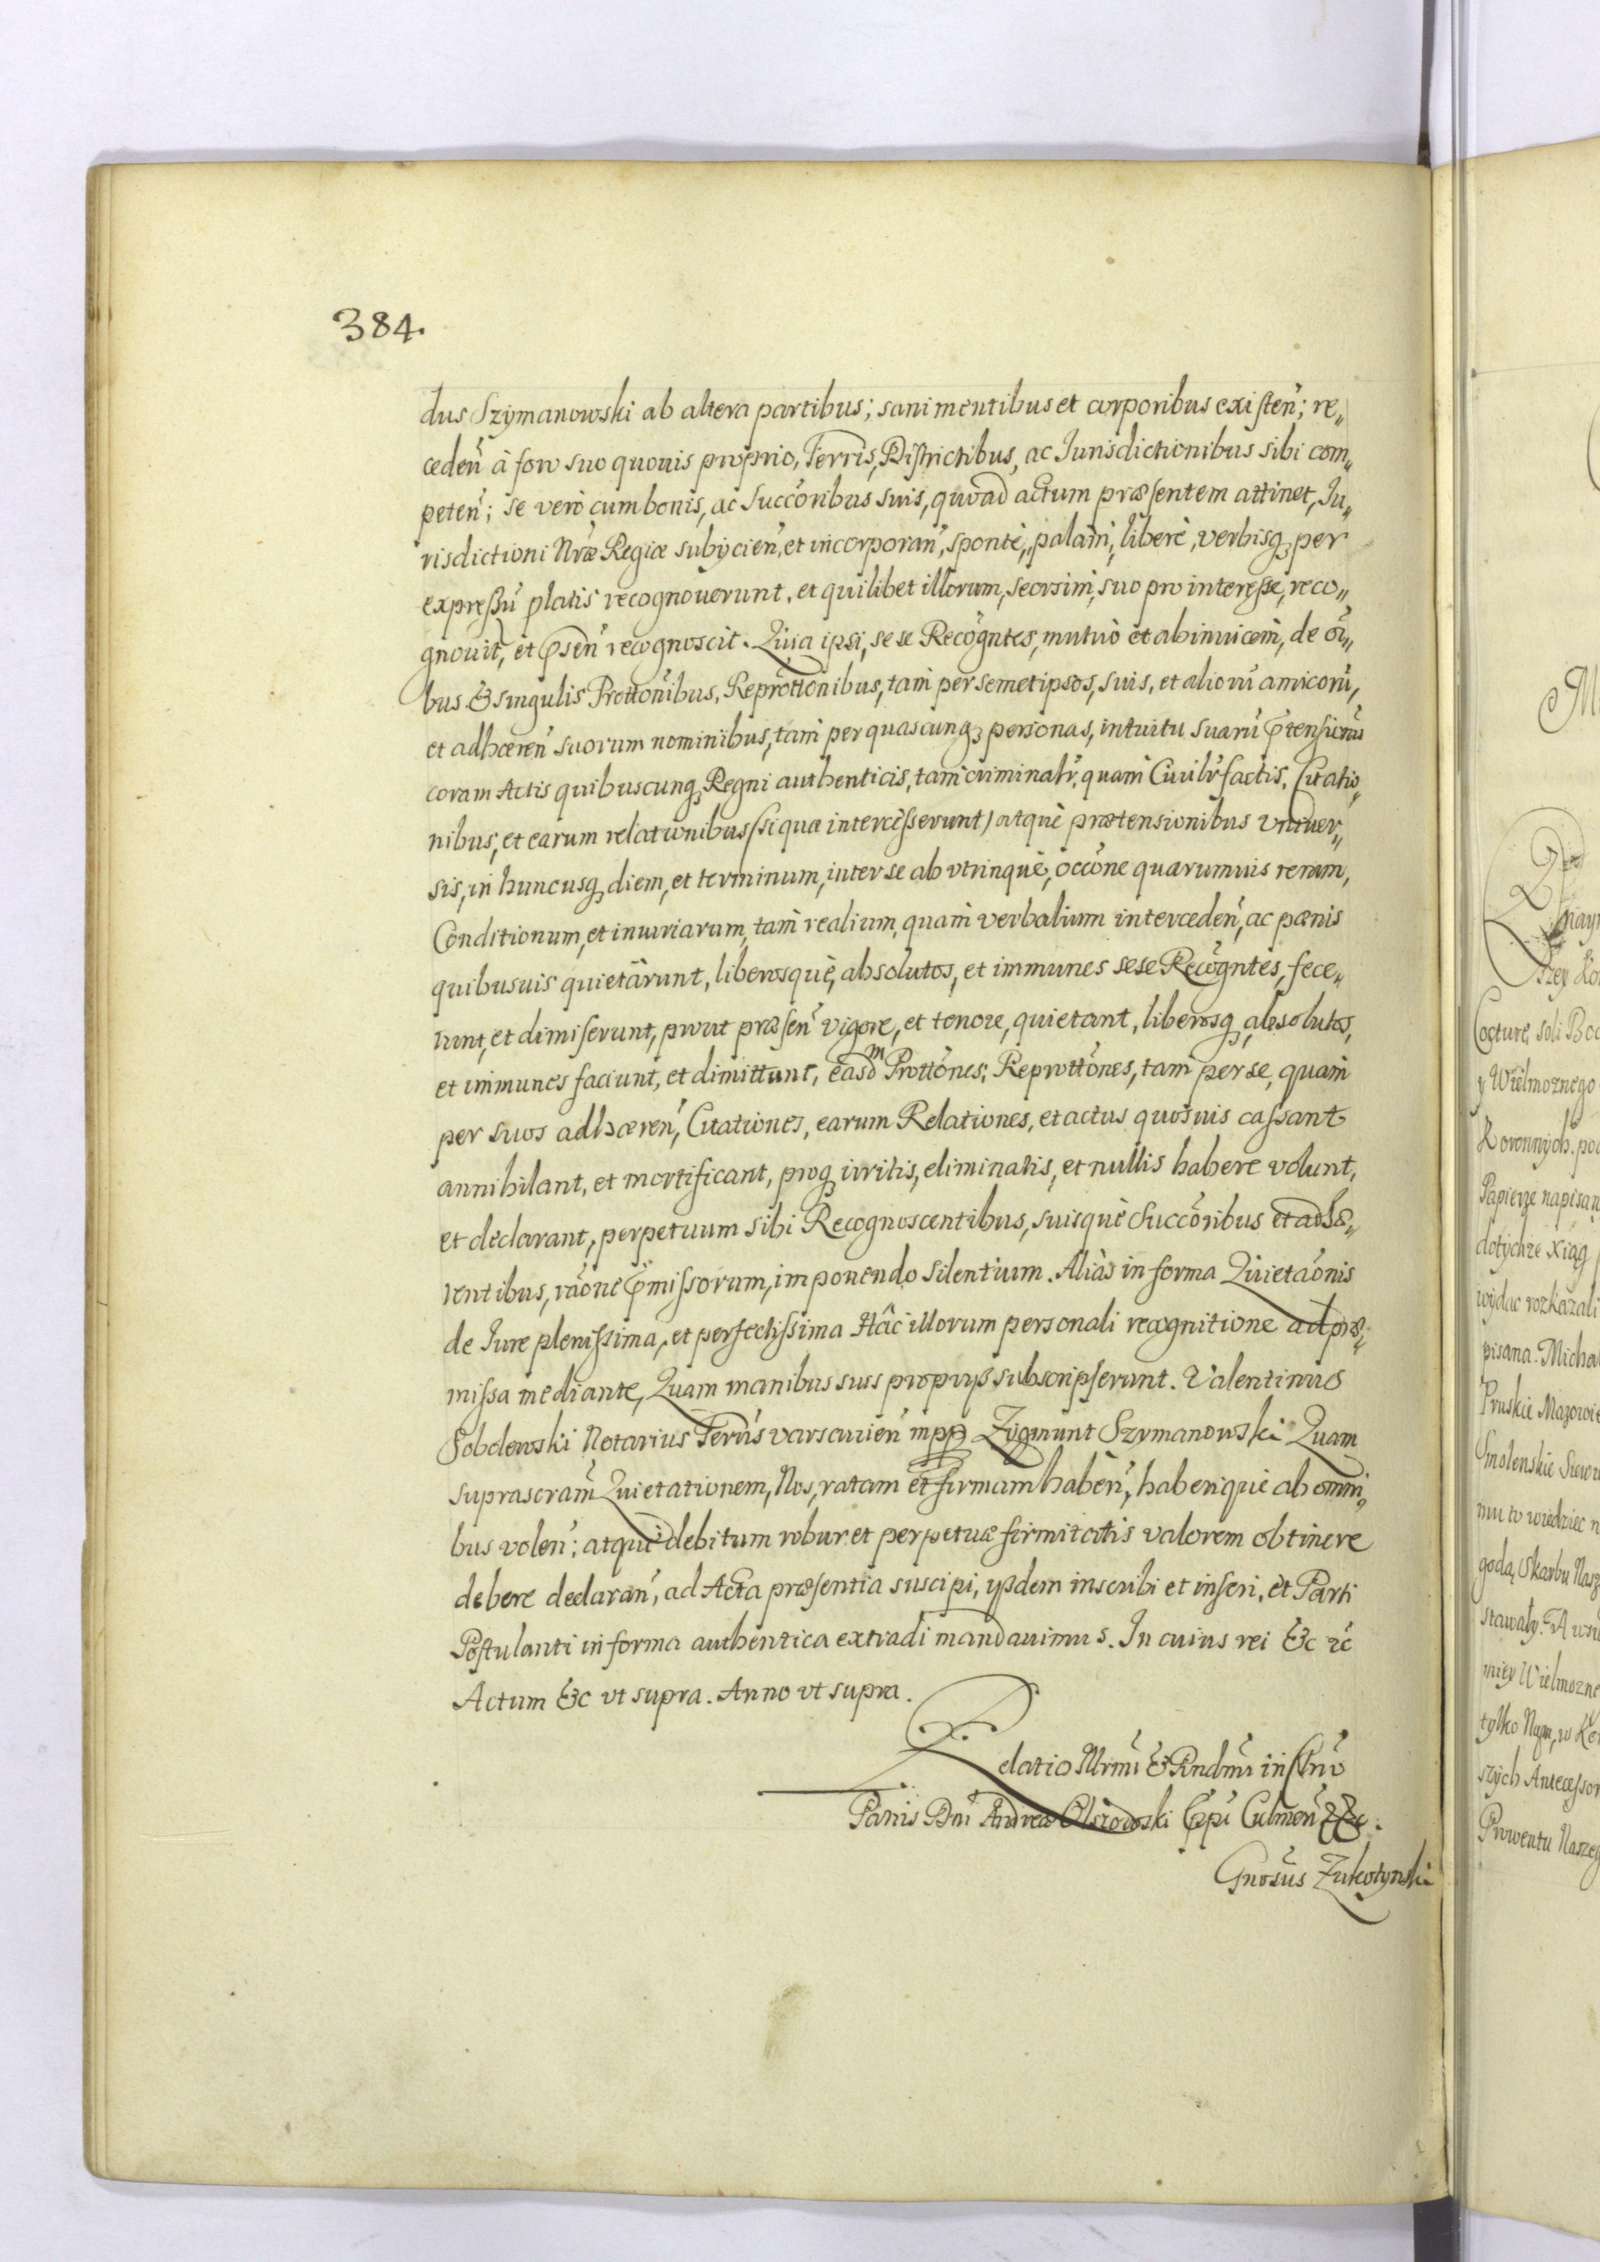 384.
dus Szymanowski ab altera partibus; sani mentibus et corporibus existen̄; re„
ceden̄ à foro suo quovis proprio, Terris, Districtibus, ac Jurisdictionibus sibi com„
peten̄; se verò cum bonis, ac Succōribus suis, quoad actum præsentem attinet, Ju„
risdictioni Nr̄æ Regiæ subijcien̄, et incorporan̄, spontè, palàm, liberè, verbisq̨ per
expressū platis recognoverunt, et quilibet illorum, seorsim, suo pro interesse, reco„
gnovit, et p̄sen̄ recognoscit. Quia ipsi, sese Recōgntes, mutuò et abinuicem, de ōi„
bus & singulis Prottōnibus, Reprottōnibus, tam per semetipsos, suis, et aliorū amicorū,
et adhæren̄ suorum nominibus, tam per quascunq̨ personas, intuitu suarū p̄tensionū
coram Actis quibuscunq̨ Regni authenticis, tam criminalr̄, quam Civilr̄ factis, Citatio„
nibus, et earum relationibus (si quæ intercesserunt) atquè prætensionibus vniver„
sis, in huncusq̨ diem, et terminum, inter se ab vtrinquè, occōne quarumvis rerum,
Conditionum, et iniuriarum, tam realium, quam verbalium interceden̄, ac pænis
quibusuis quietârunt, liberosquè, absolutos, et immunes sese Recōgntes, fece„
runt, et dimiserunt, prout præsen̄ vigore, et tenore, quietant, liberosq̨ absolutos,
et immunes faciunt, et dimittunt, easdm Prottōnes, Reprottōnes, tam per se, quam
per suos adhæren̄, Citationes, earum Relationes, et actus quosuis cassant
annihilant, et mortificant, proq̨ irritis, eliminatis, et nullis habere volunt,
et declarant, perpetuum sibi Recognoscentibus, suisquè Succōribus et adhæ„
rentibus, rāone p̄missorum, imponendo silentium. Aliàs in forma Quietaōnis
de Jure plenissima, et perfectissima Hâc illorum personali recognitione ad præ„
missa mediante, Quam manibus suis proprys subscripserunt. Valentinus
Sobolewski Notarius Terrūs varsavien̄ mpp Zygmunt Szymanowski Quam
suprascram̄ Quietationem, Nos, ratam et firmam haben̄, haberiquè ab omni„
bus volen̄; atquè debitum robur et perpetuæ firmitatis valorem obtinere
debere declaran̄, ad Acta præsentia suscipi, ysdem inscribi et inseri, et Parti
Postulanti in forma authentica extradi mandavimus. In cuius rei &c &c
Actum &c vt supra. Anno vt supra.
Relatio Illrmi & Rndmi in Chrō
Patris Dn̄i Andreæ Olszowski Ep̄i Culmen̄ &c.
Gnōsus Zukotynski